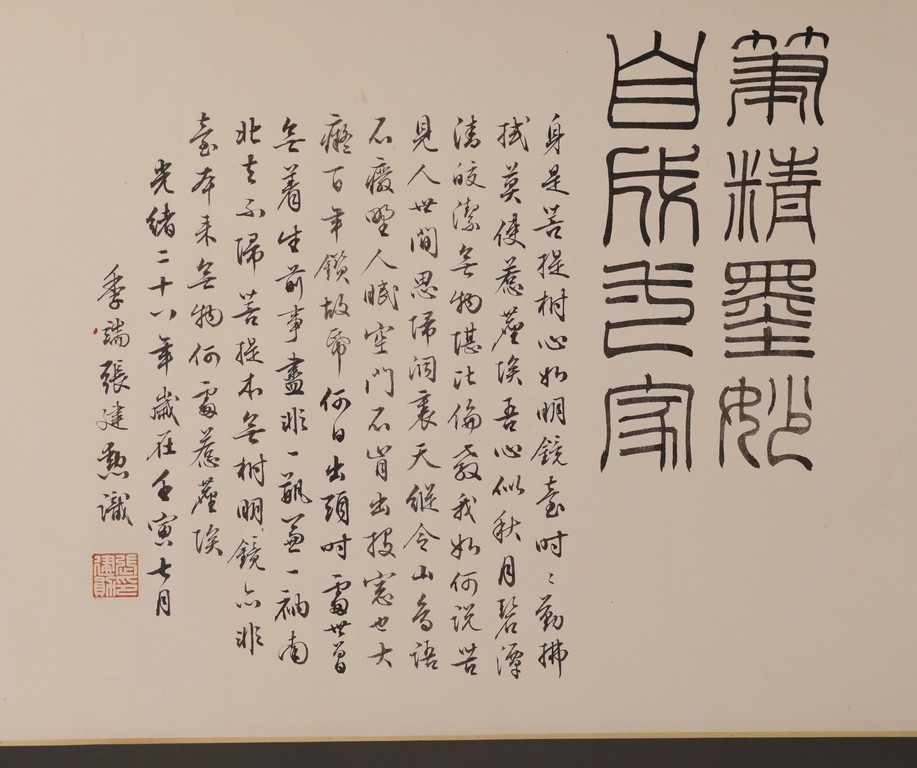 筆精墨妙
自成弌家
身是菩提樹心如明鏡臺時〻勤拂
拭莫使惹塵埃吾心似秋月碧潭
清皎潔無物堪比倫教我如何說苦
見人世間思歸洞裏天縱令山鳥語
不廢野人眠空門不肯出投窗也大
癡百年鑽故帋何日出頭時處世曾
無着生前事盡非一瓶兼一衲南
北去不歸菩提本無樹明鏡亦非
臺本來無物何處惹塵埃
光緒二十八年歲在壬寅七月
季端張建勳識
張建勳印